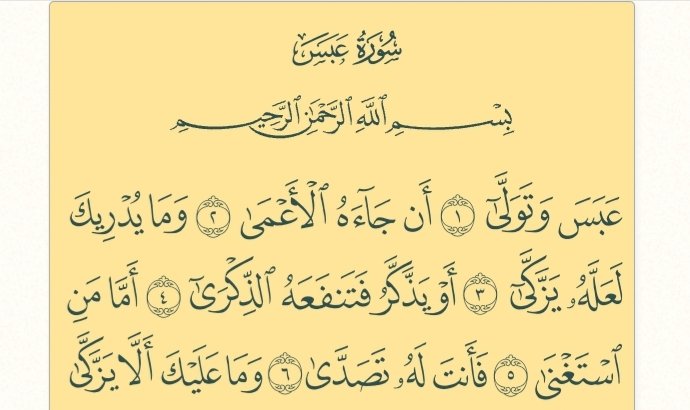 سُورَةُ عَبَسَ
بِسْمِ ٱللَّهِ ٱلرَّحْمَٰنِ ٱلرَّحِيمِ
عَبَسَ وَتَوَلَّىٰٓ ١ أَن جَآءَهُ ٱلْأَعْمَىٰ ٢ وَمَا يُدْرِيكَ
لَعَلَّهُۥ يَزَّكَّىٰٓ ٣ أَوْ يَذَّكَّرُ فَتَنفَعَهُ ٱلذِّكْرَىٰٓ ٤ أَمَّا مَنِ
ٱسْتَغْنَىٰ ٥ فَأَنتَ لَهُۥ تَصَدَّىٰ ٦ وَمَا عَلَيْكَ أَلَّا يَزَّكَّىٰ